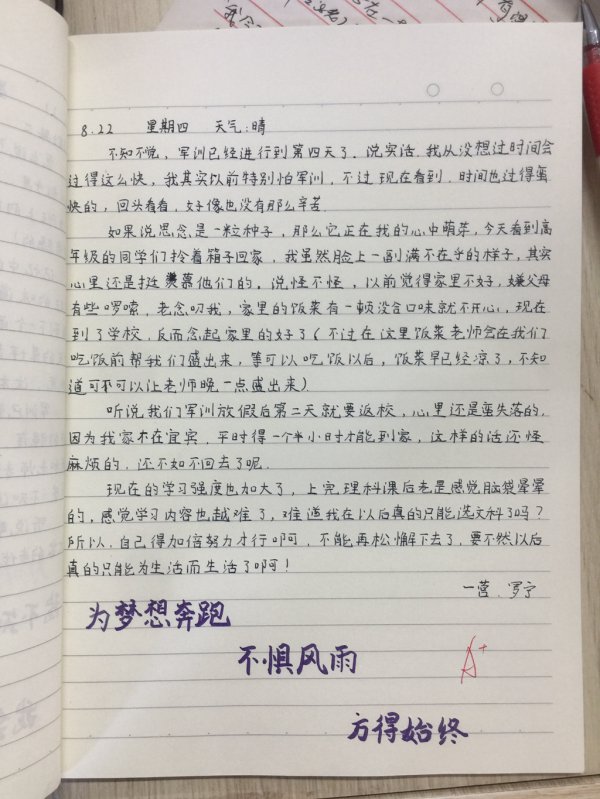 8.22 星期四 天气:晴
不知不觉,军训已经进行到第四天了。说实话,我从没想过时间会
过得这么快,我其实以前特别怕军训,不过现在看到,时间也过得蛮
快的,回头看看,好像也没有那么辛苦。
如果说思念是一粒种子,那么它正在我的心中萌芽,今天看到高
年级的同学们拎着箱子回家,我虽然脸上一副满不在乎的样子,其实
心里还是挺羡慕他们的。说怪不怪,以前觉得家里不好,嫌父母
有些啰嗦,老念叨我,家里的饭菜有一顿没合口味就不开心,现在
到了学校,反而念起家里的好了(不过在这里饭菜老师会在我们
吃饭前帮我们盛出来,等可以吃饭以后,饭菜早已经凉了,不知
道可不可以让老师晚一点盛出来)
听说我们军训放假后第二天就要返校,心里还是蛮失落的,
因为我家不在宜宾,平时得一个半小时才能到家,这样的话还怪
麻烦的,还不如不回去了呢。
现在的学习强度也加大了,上完理科课后老是感觉脑袋晕晕
的,感觉学习内容也越难了,难道我在以后真的只能选文科了吗?
所以,自己得加倍努力才行啊,不能再松懈下去了,要不然以后
真的只能为生活而生活了啊!
一营 罗宁
为梦想奔跑
不惧风雨
A+
方得始终